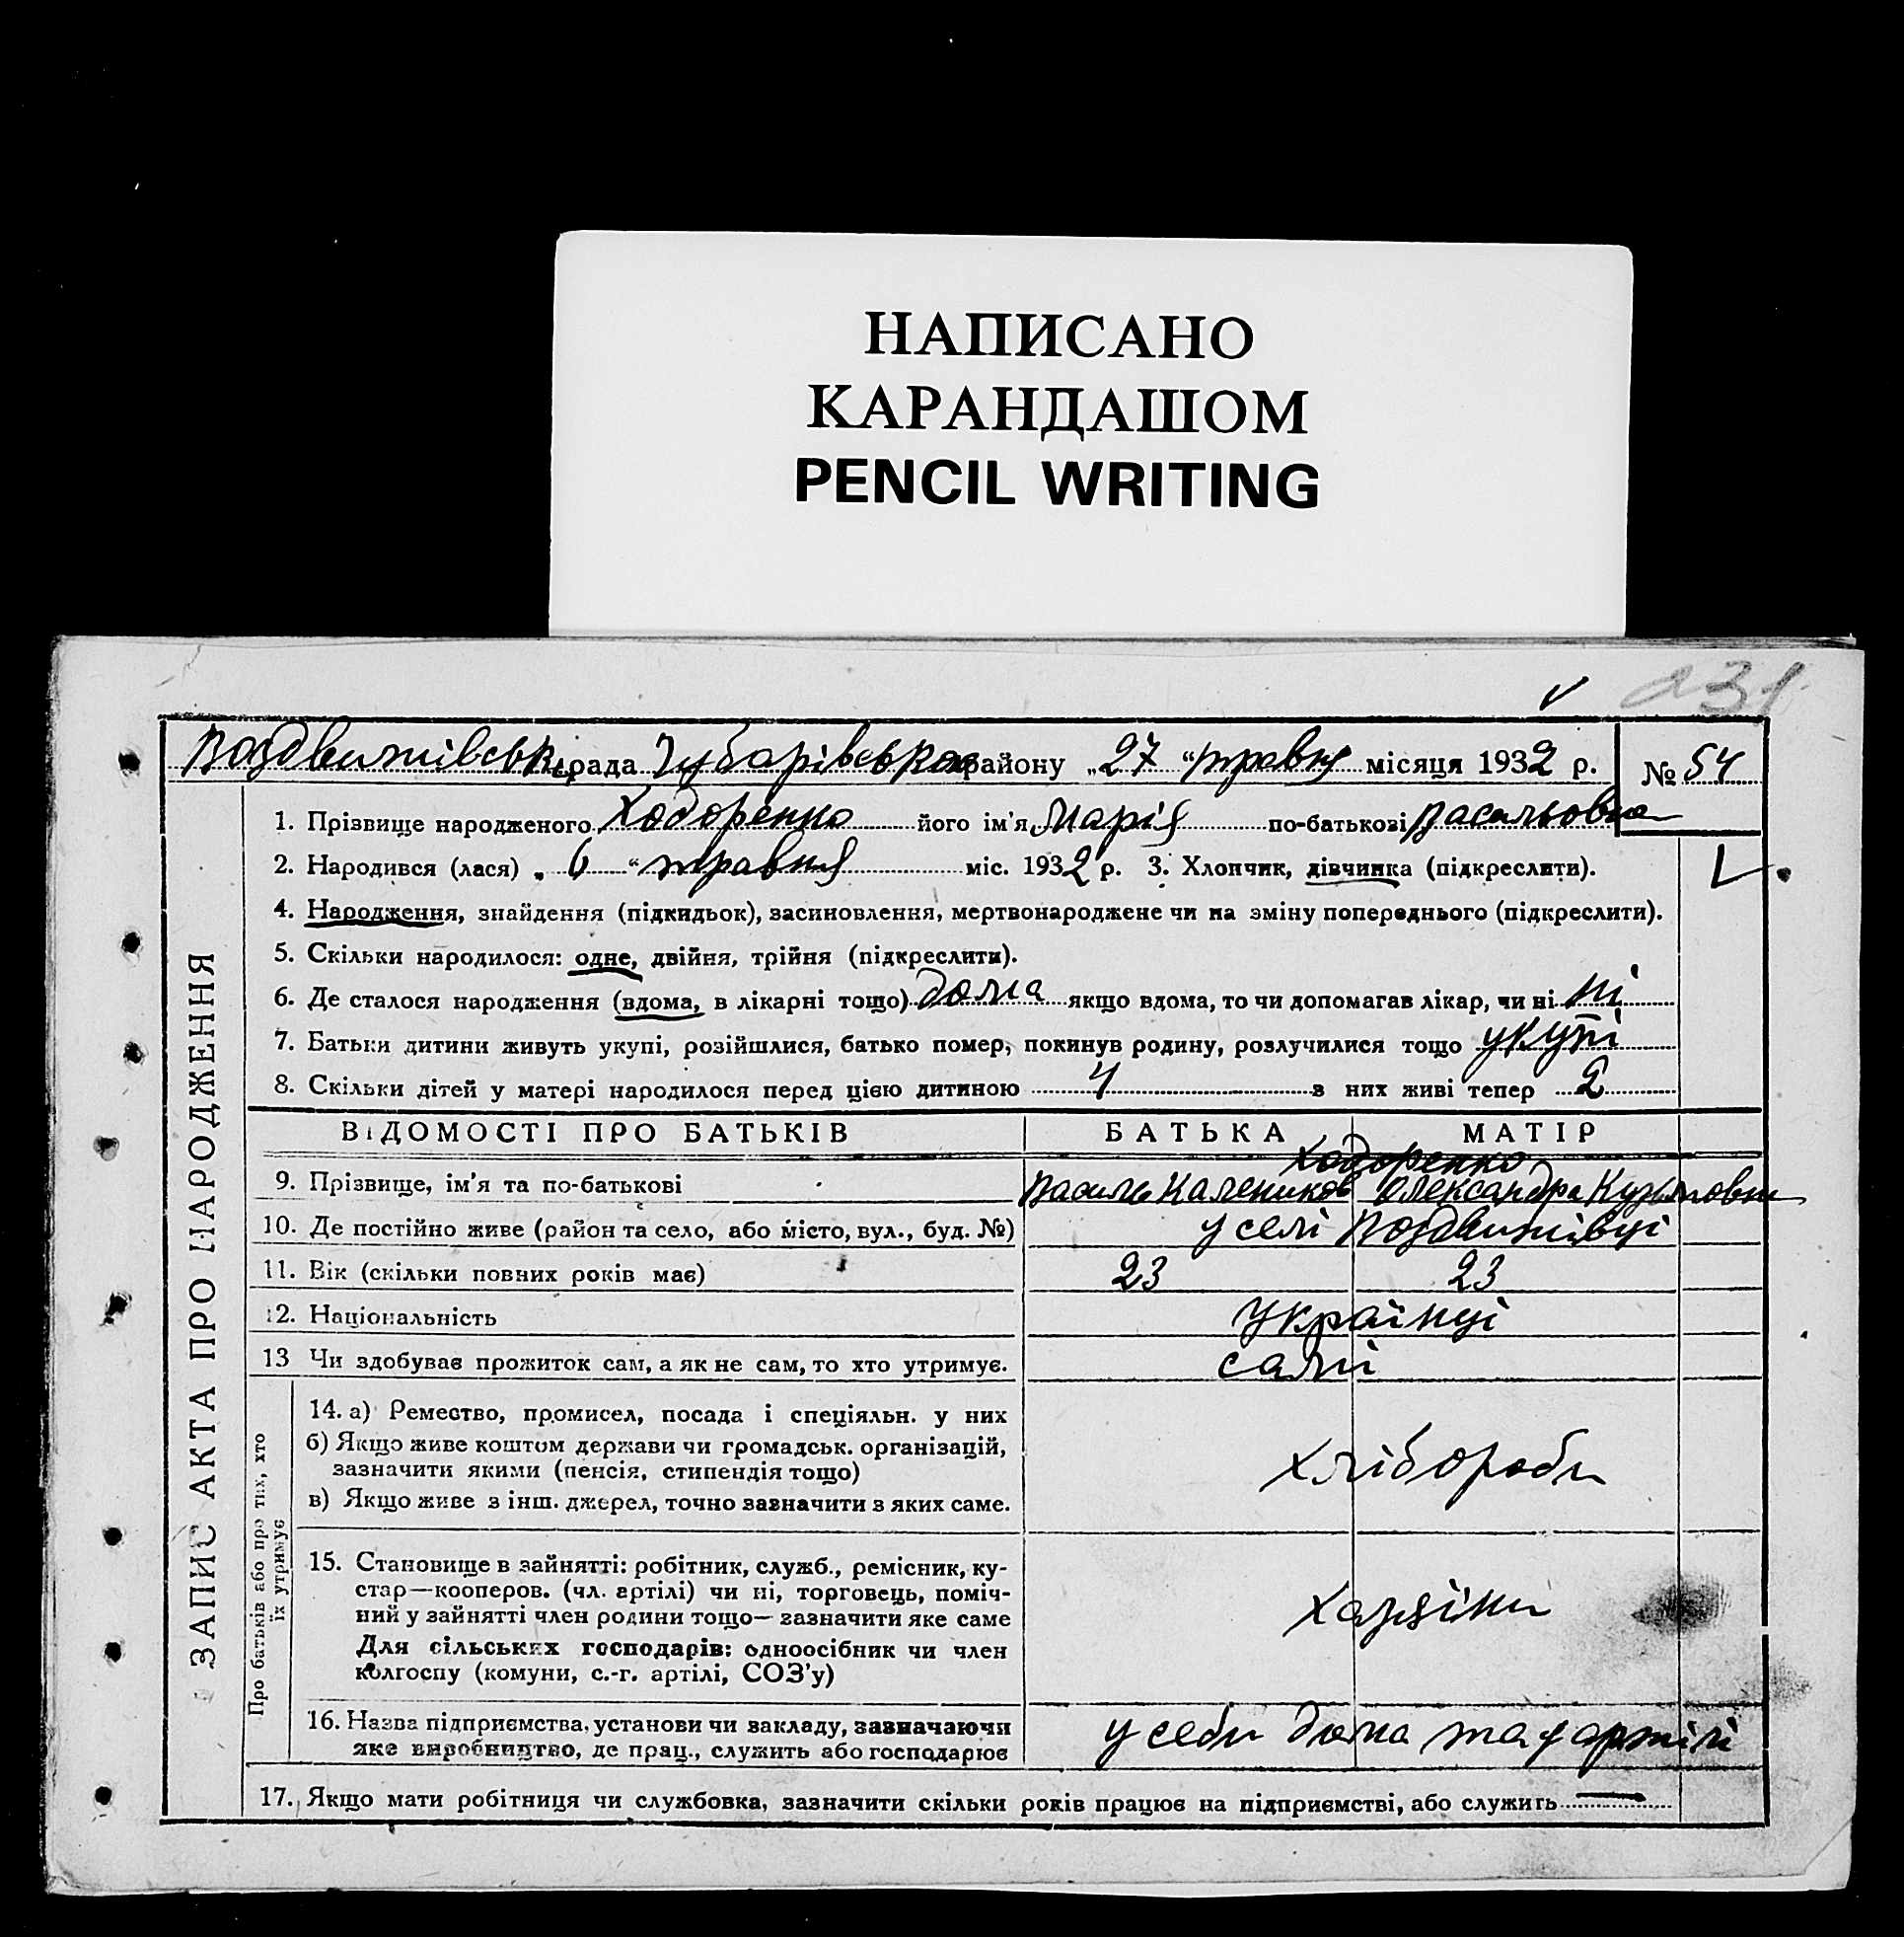 НАПИСАНО
КАРАНДАШОМ
PENCIL WRITING
Воздвижівська рада Чубарівського району „27“ травня місяця 1932 р. № 54
1. Прізвище народженого Ходоренко його ім'я Марія по-батькові Васильовна
2. Народився (лася) „6“ травня міс. 1932 р. 3. Хлопчик, дівчинка (підкреслити).
4. Народження, знайдення (підкидьок), засиновлення, мертвонароджене чи на зміну попереднього (підкреслити).
5. Скільки народилося: одне, двійня, трійня (підкреслити).
6. Де сталося народження (вдома, в лікарні тощо) дома якщо вдома, то чи допомагав лікар, чи ні ні
7. Батьки дитини живуть укупі, розійшлися, батько помер, покинув родину, розлучилися тощо укупі
8. Скільки дітей у матері народилося перед цією дитиною 4 з них живі тепер 2
ВІДОМОСТІ ПРО БАТЬКІВ БАТЬКА МАТІР
Ходоренко
9. Прізвище, ім'я та по-батькові Василь Калеников Олександра Кузьмовна
10. Де постійно живе (район та село, або місто, вул., буд. №) у селі Воздвижівці
11. Вік (скільки повних років має) 23 23
12. Національність Українці
13 Чи здобуває прожиток сам, а як не сам, то хто утримує. сами
14. а) Ремество, промисел, посада і спеціяльн. у них
б) Якщо живе коштом держави чи громадськ. організацій,
зазначити якими (пенсія, стипендія тощо)
в) Якщо живе з інш. джерел, точно зазначити з яких саме.
Хлібороби
15. Становище в зайнятті: робітник, служб., ремісник, ку-
стар—кооперов. (чл. артілі) чи ні, торговець, поміч-
ний у зайнятті член родини тощо— зазначити яке саме
Для сільських господарів: одноосібник чи член
колгоспу (комуни, с.-г. артілі, СОЗ'у)
Хазяіни
16. Назва підприємства, установи чи закладу, зазначаючи
яке виробництво, де прац., служить або господарює
у себи дома та у артілі
17. Якщо мати робітниця чи службовка, зазначити скільки років працює на підприємстві, або служить —
ЗАПИС АКТА ПРО НАРОДЖЕННЯ
Про батьків або про тих, хто
їх утримує